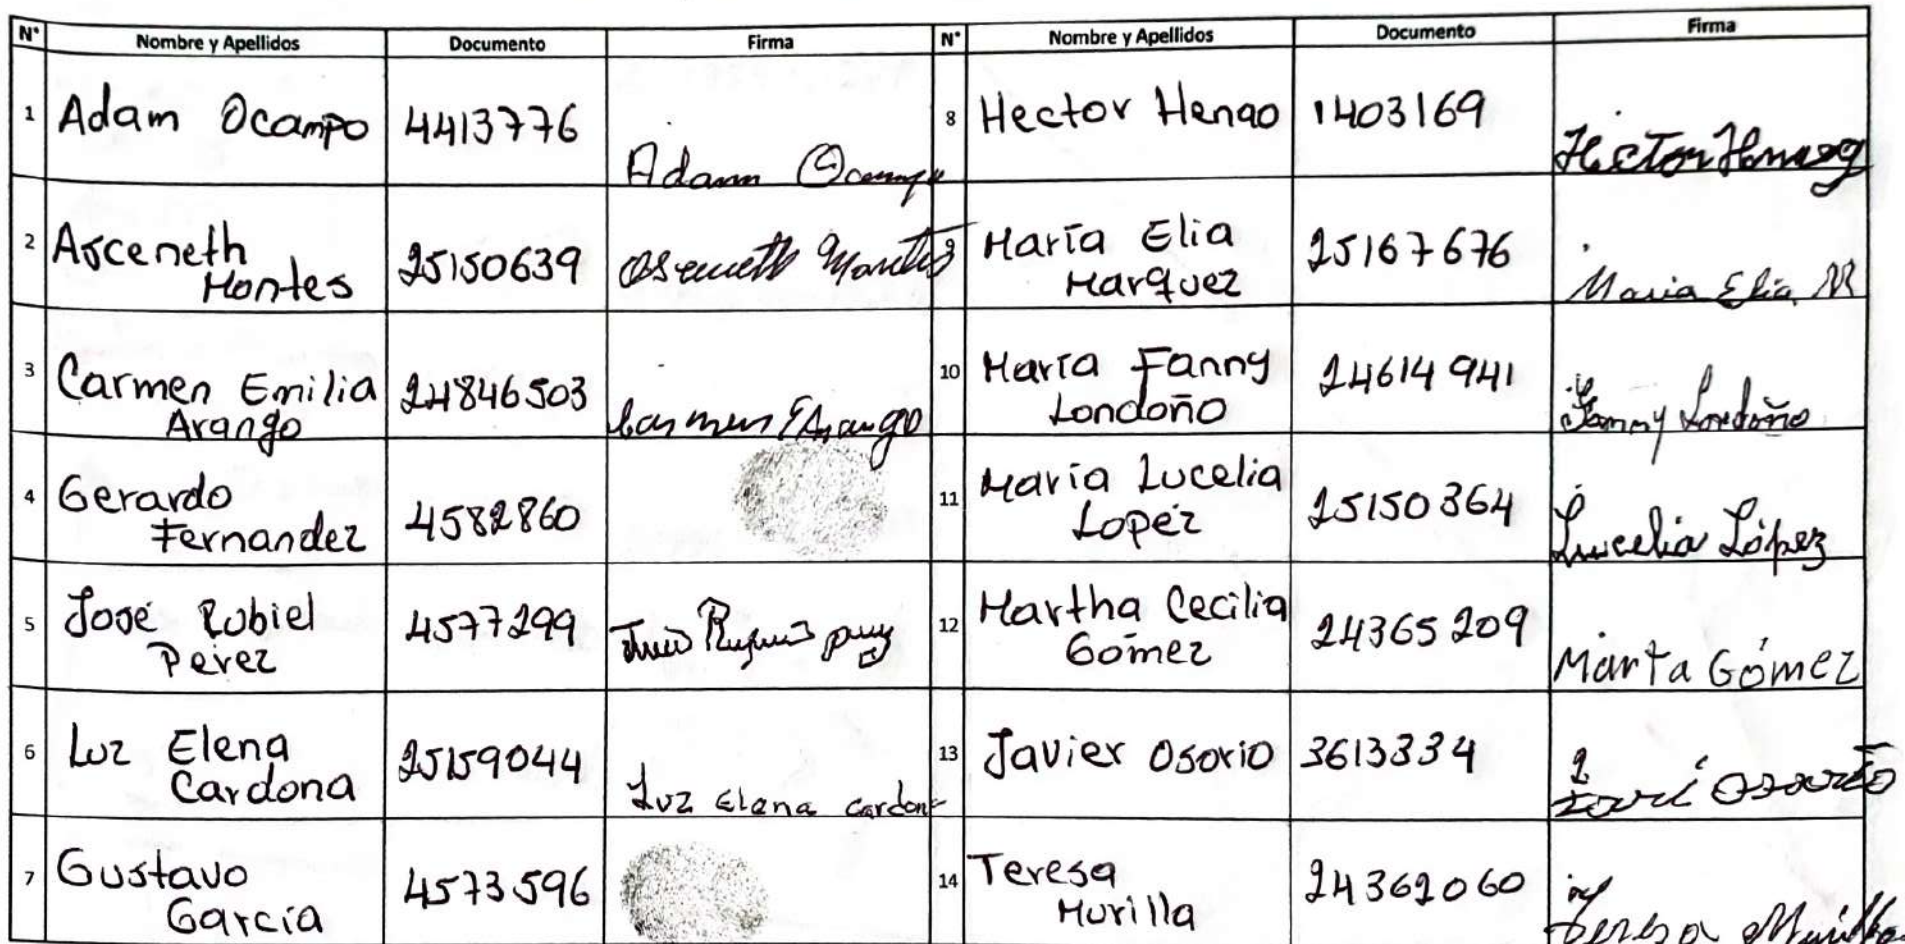 N° Nombre y Apellidos Documento Firma N° Nombre y Apellidos Documento Firma
1 Adam Ocampo 4413776 Adam Ocampo
2 Asceneth Montes 25150639
3 Carmen Emilia Arango 24846503 Carmen E Arango
4 Gerardo Fernandez 4582860
5 José Rubiel Pérez 4577299
6 Luz Elena Cardona 25159044 Luz Elena Cardona
7 Gustavo García 4573596
8 Hector Henao 1403169 Hector Henao
9 María Elia Marquez 25167676 Maria Elia M
10 María Fanny Londoño 24614941 Fanny Londoño
11 María Lucelia Lopéz 25150364 Lucelia López
12 Martha Cecilia Gómez 24365209 Marta Gómez
13 Javier Osorio 3613334 Osorio
14 Teresa Murilla 24362060 Teresa